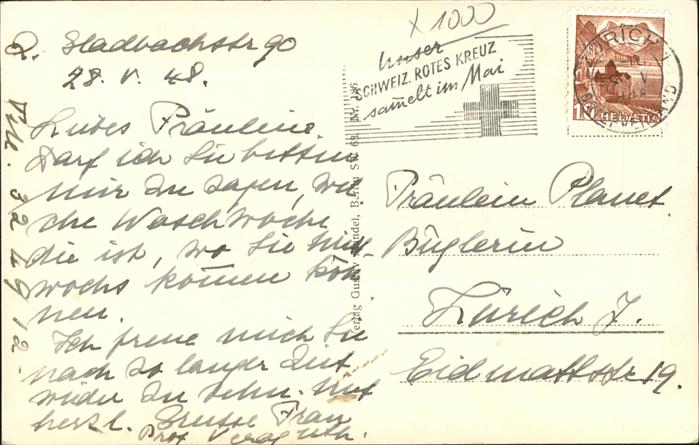 Gladbachstr 90
28. V. 48.
Liebes Fräulein.
Darf ich Sie bitten
mir zu sagen, wel
che Waschwoche
die ist, wo Sie Mitt-
wochs kommen kön
nen.
Ich freue mich Sie
nach so langer Zeit
wieder zu sehn. Mit
herzl. Grüsse Frau
Prof Veraguth.
Tel. 32 49 12
Verlag Gustav Mandel, Basel Str. 68. Nr. 186
X 1000
Unser
SCHWEIZ. ROTES KREUZ
sammelt im Mai
ZÜRICH 1
BRIEFVERSAND
10 HELVETIA
Fräulein Planet
Büglerin
Zürich 7.
Eidmattstr 19.